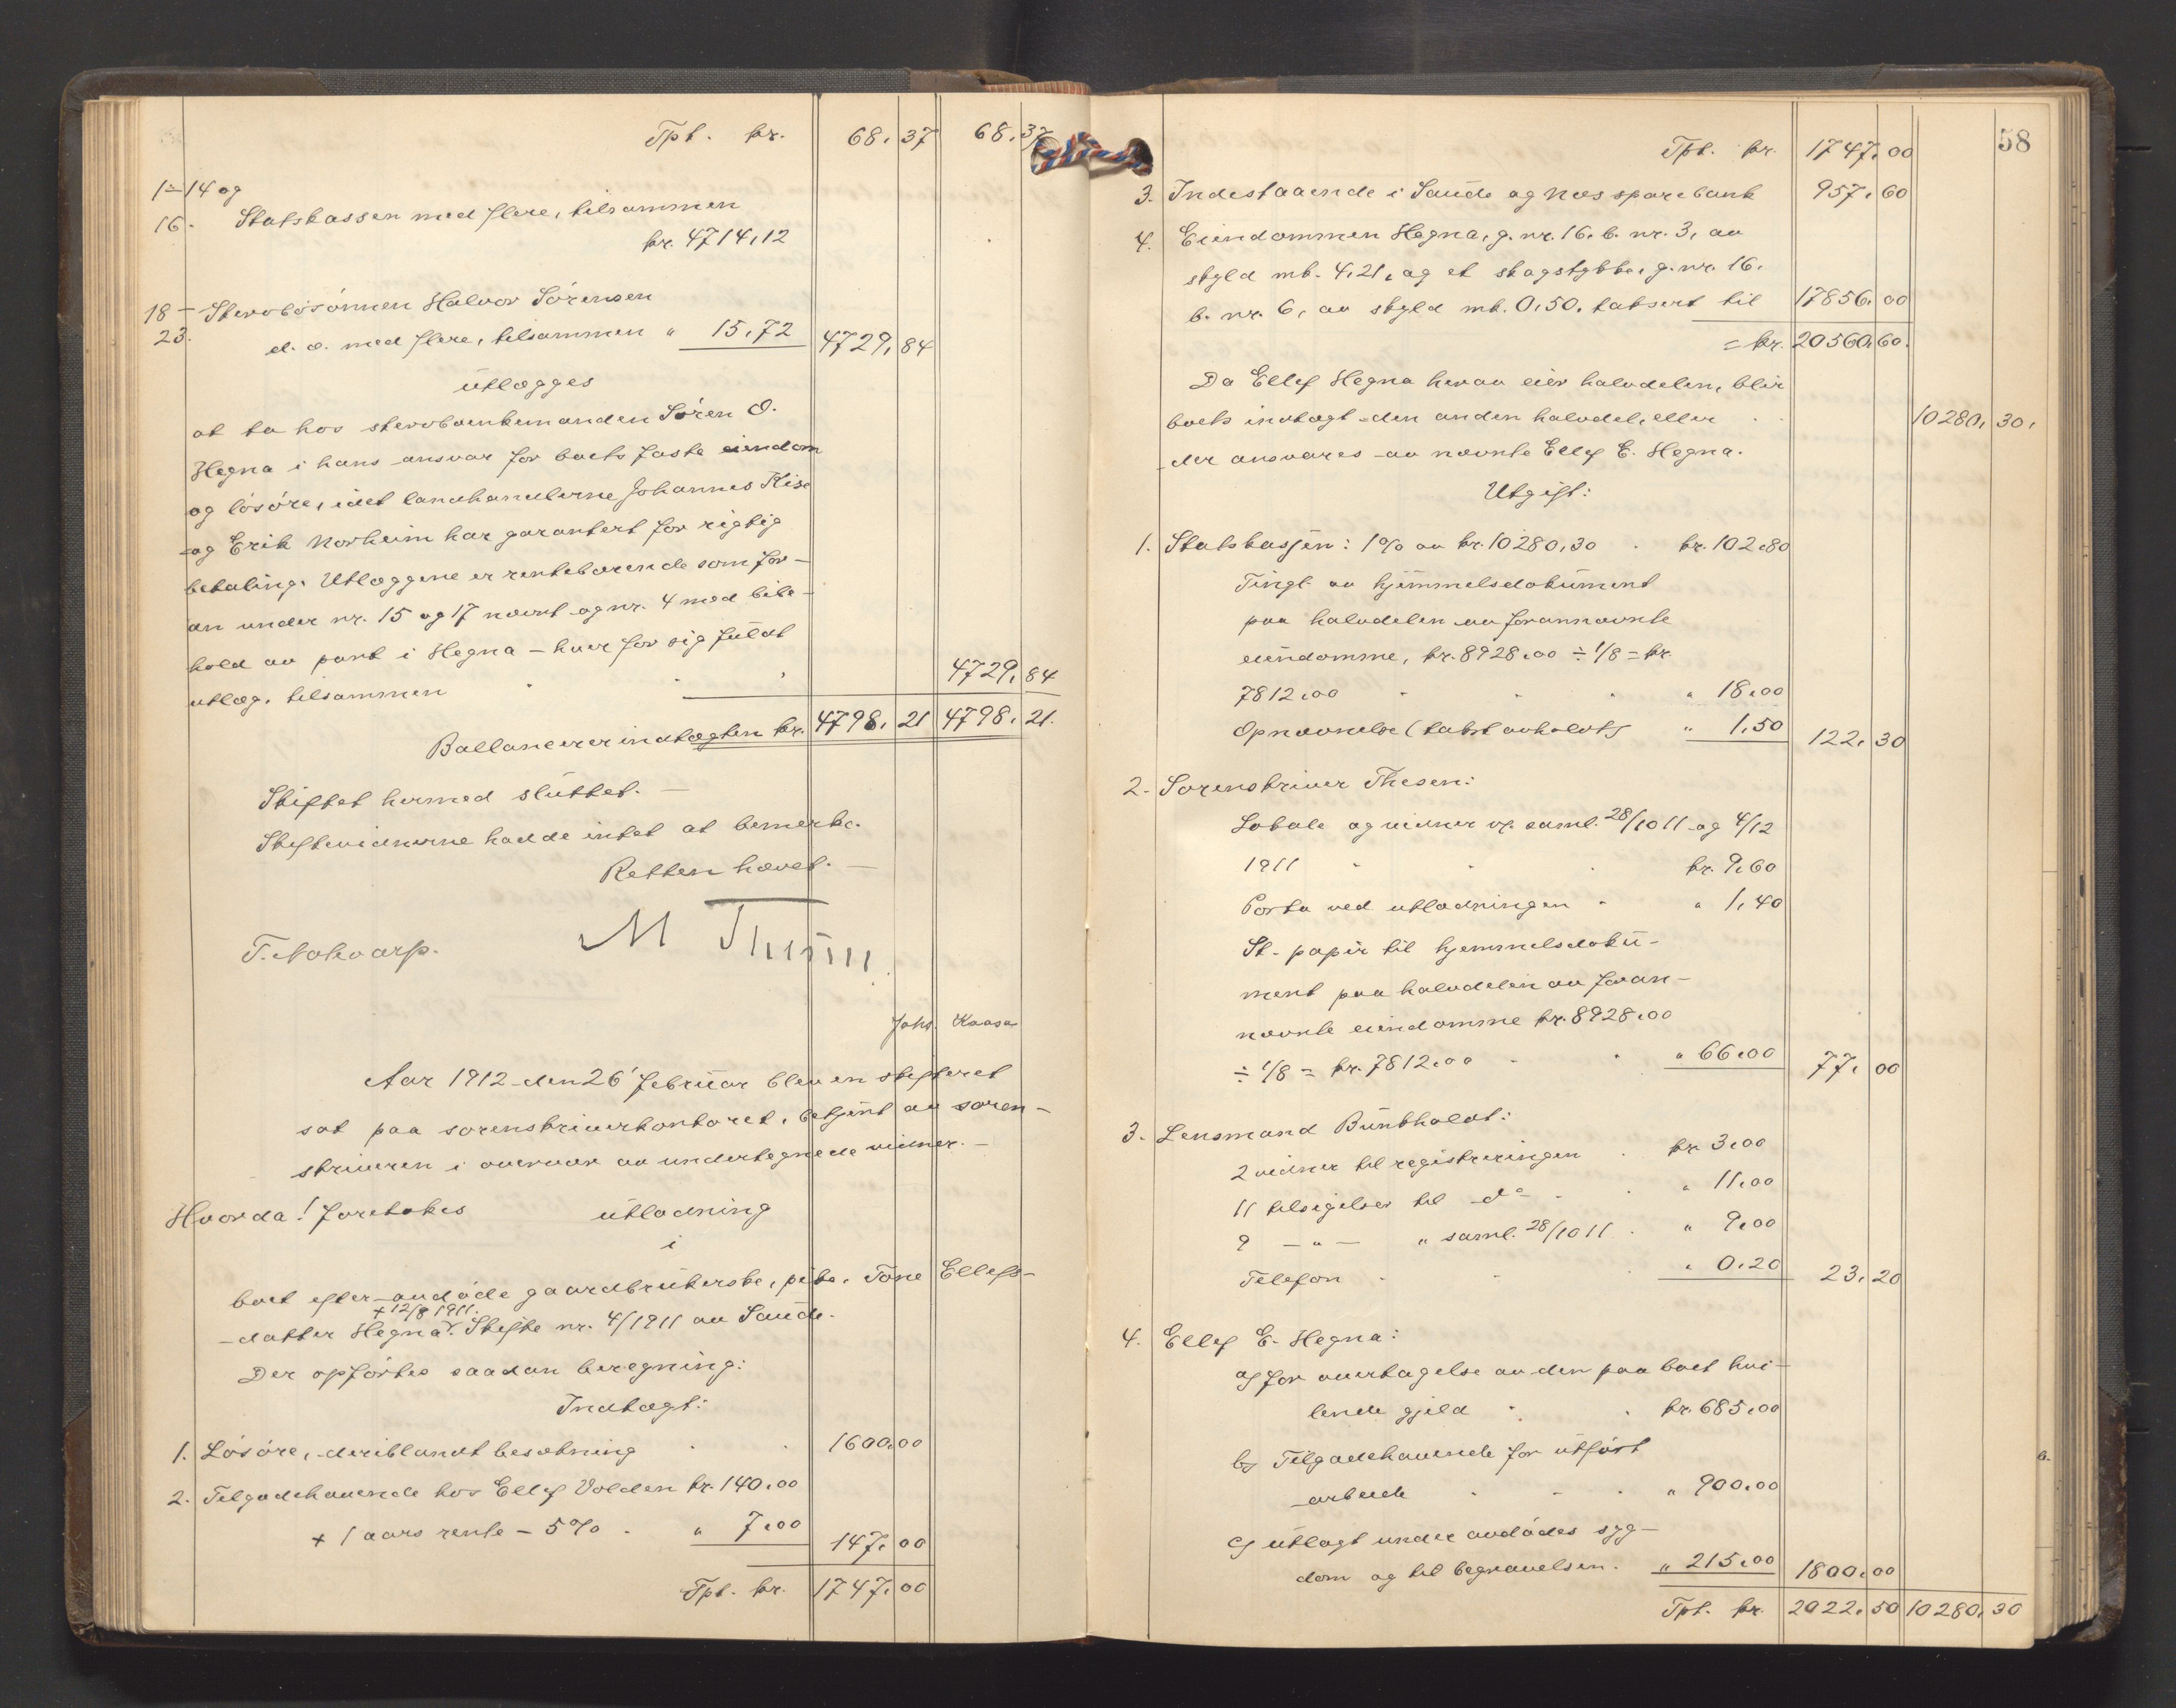 Tpt. kr. 68,37 68,37
1-14 og
16. Statskassen med flere, tilsammen
kr. 4714,12
18- Stervbosönnen Halvor Sörensen
23. d. o. med flere, tilsammen " 15,72 4729,84
utlægges
at ta hos stervboenkemanden Sören O.
Hegna i hans ansvar for boets faste eiendom
og lösöre, idet landhandlerne Johannes Kise
og Erik Norheim har garantert for rigtig
betaling. Utlæggene er rentebærende som for-
an under nr. 15 og 17 nævnt og nr. 4 med bibe-
hold av pant i Hegna - hver for sig fuldt
utlæg, tilsammen 4729,84
Ballancerer indtægten kr. 4798,21 4798,21.
Skiftet hermed sluttet. -
Skiftevidnerne hadde intet at bemerke.
Retten hævet. -
M Thesen
Johs. Kaasa
Aar 1912 den 26' februar blev en skifteret
sat paa sorenskriverkontoret, betjent av soren-
skriveren i overvær av undertegnede vidner. -
Hvorda! foretokes utlodning
i
boet efter avdöde gaardbrukerske, pike, Tone Ellefs-
+ 12/8 1911.
datter Hegna. Skifte nr. 4/1911 av Saude.
Der opförtes saadan beregning:
Indtægt:
1. Lösöre, deriblandt besætning 1600,00
2. Tilgodehavende hos Ellef Volden kr. 140,00
+ 1 aars rente - 5% " 7,00 147,00
Tpt. kr. 1747,00
58
Tpt. kr. 1747,00
3. Indestaaende i Saude og Nes sparebank 957,60
4. Eiendommen Hegna, g. nr. 16, b. nr. 3, av
skyld mk. 4,21, og et skogstykke, g. nr. 16.
b. nr. 6, av skyld mk. 0,50, taksert til 17856,00
= kr. 20560,60.
Da Ellef Hegna herav eier halvdelen, blir
boets indtægt den anden halvdel, eller 10280,30,
der ansvares av nævnte Ellef E. Hegna.
Utgift:
1. Statskassen: 1% av kr. 10280,30 kr. 102,80
Tingl. av hjemmelsdokument
paa halvdelen av forannævnte
eiendomme, kr. 8928,00 ÷ 1/8 = kr.
7812,00 " 18,00
Opnævnelse (takst avholdt) " 1,50 122,30
2. Sorenskriver Thesen:
Lokale og vidner v. saml. 28/10 11 og 4/12
1911 kr. 9,60
Porto ved utlodningen " 1,40
St. papir til hjemmelsdoku-
ment paa halvdelen av foran-
nævnte eiendomme kr. 8928,00
÷ 1/8 = kr. 7812,00 " 66,00 77,00
3. Lensmand Bunkholdt:
2 vidner til registreringen kr. 3,00
11 tilsigelser til do " 11,00
9 - " - " saml. 28/10 11 " 9,00
Telefon " 0,20 23,20
4. Ellef E. Hegna:
a) for overtagelse av den paa boet hvi-
lende gjeld kr. 685,00
b) Tilgodehavende for utfört
arbeide " 900,00
c) utlagt under avdödes syg-
dom og til begravelsen. " 215,00 1800,00
Tpt. kr. 2022,50 10280,30